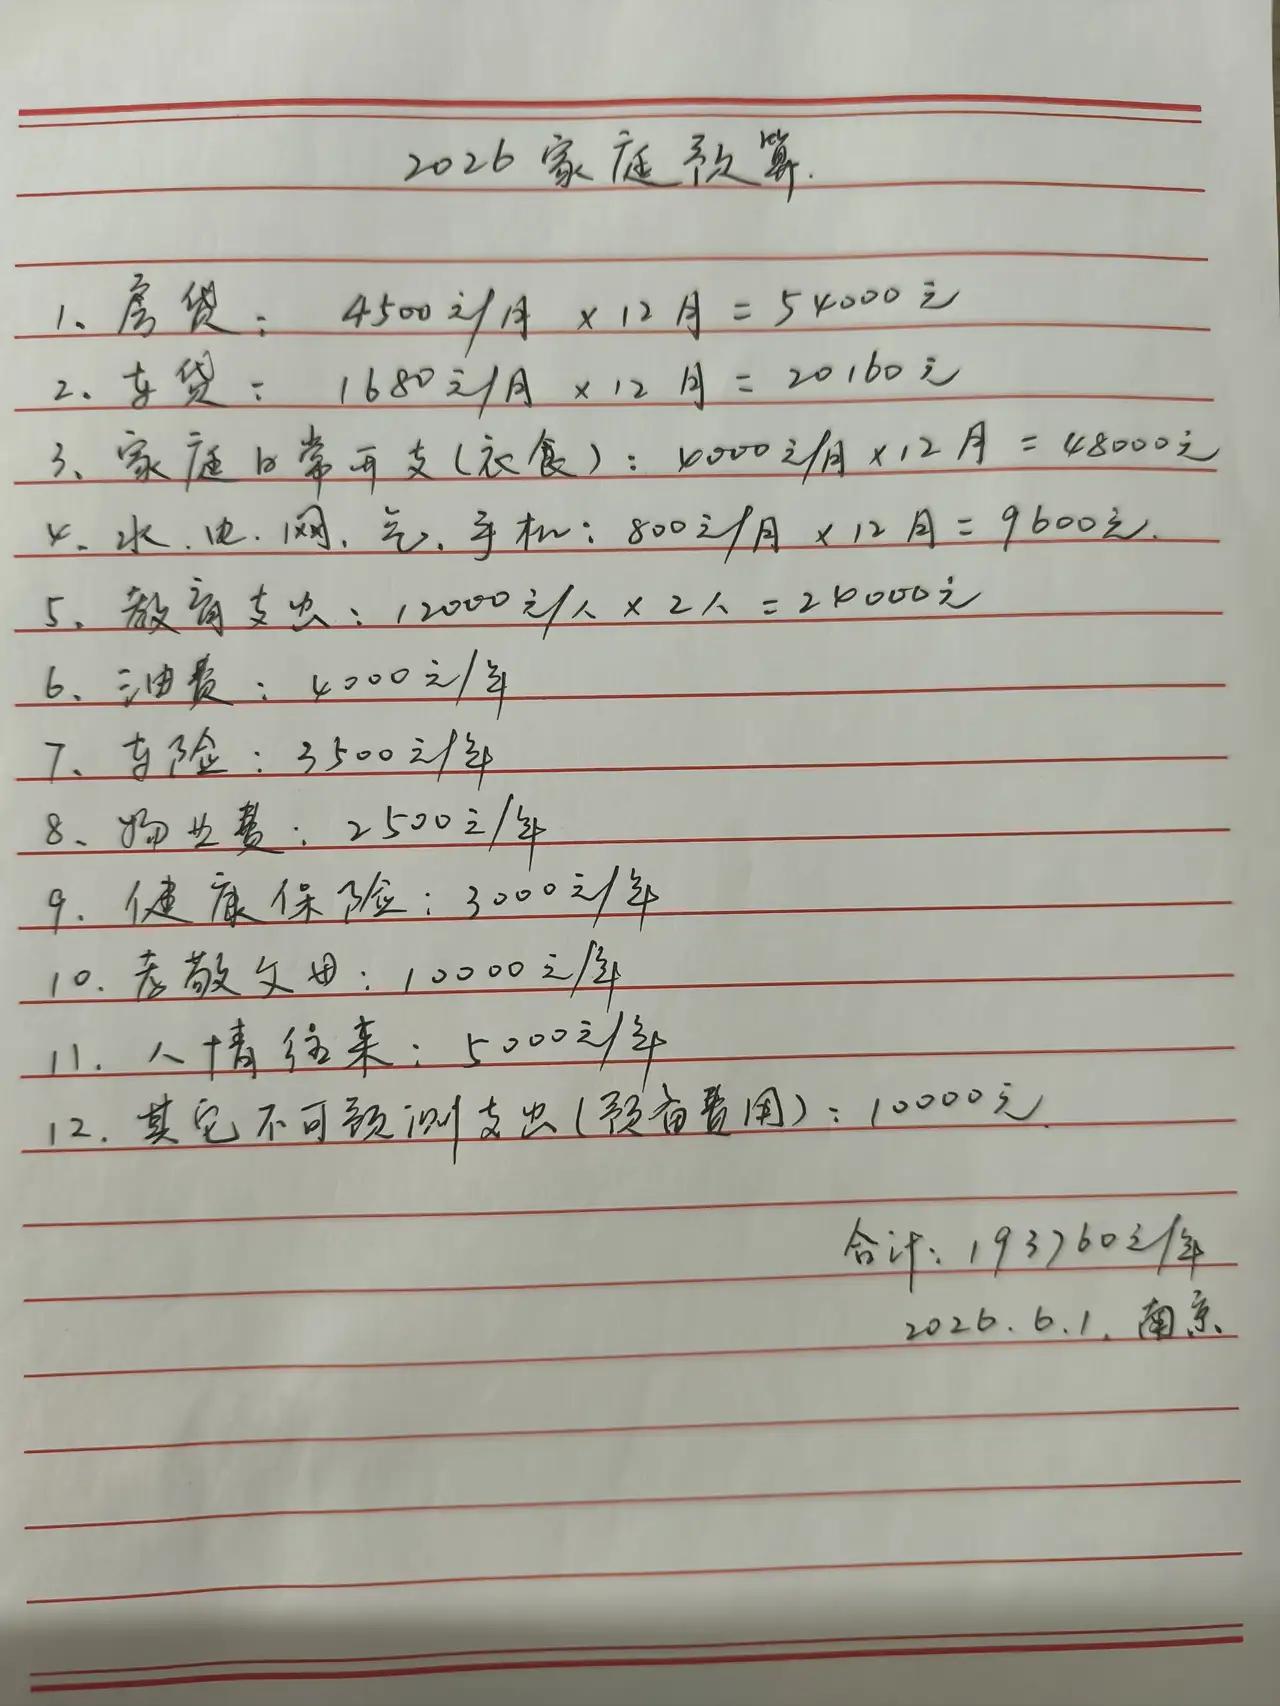 2026家庭预算.
1、房贷： 4500元/月 × 12月 = 54000元
2、车贷： 1680元/月 × 12月 = 20160元
3、家庭日常开支(衣食)：4000元/月 × 12月 = 48000元
4、水、电、网、气、手机：800元/月 × 12月 = 9600元.
5、教育支出：12000元/人 × 2人 = 24000元
6、油费：4000元/年
7、车险：3500元/年
8、物业费：2500元/年
9、健康保险：3000元/年
10、孝敬父母：10000元/年
11、人情往来：5000元/年
12、其它不可预测支出(预备费用)：10000元.
合计：193760元/年
2026.6.1.南京